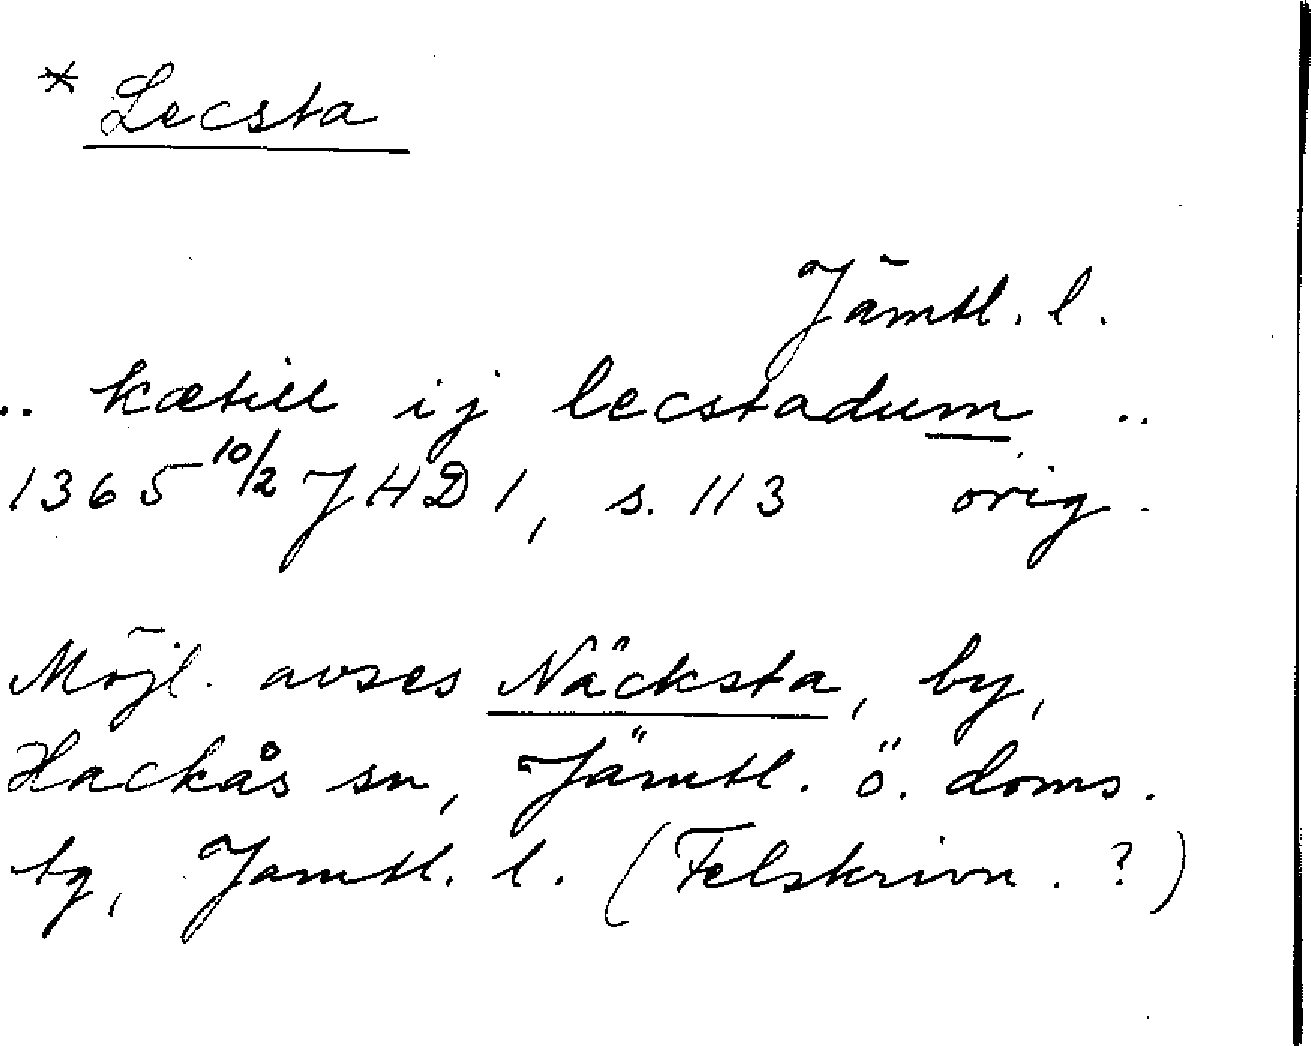 * Lecsta
Jämtl. l.
.. kætill ij lecstadum ..
1365 10/2 JHD 1, s. 113 orig.
Möjl. avses Näcksta, by,
Hackås sn, Jämtl. ö. doms.
tg, Jämtl. l. (Felskrivn. ?)